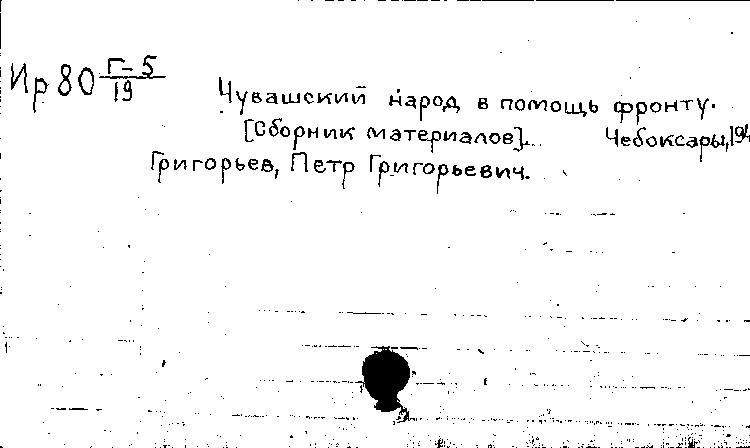 Ир 80 Г-5/19
Чувашский народ в помощь фронту.
[Сборник материалов]. Чебоксары, 194
Григорьев, Петр Григорьевич.